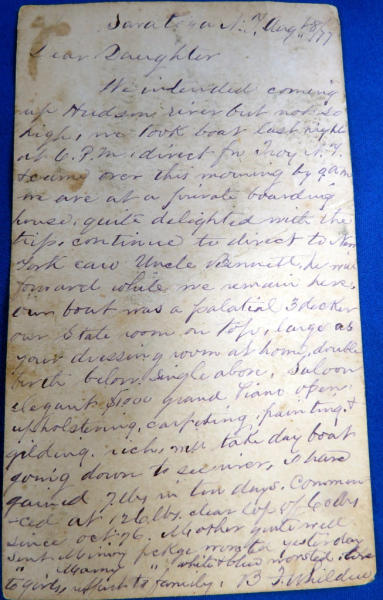 Saratoga N.Y. Aug 8/77
Dear Daughter
We intended coming
up Hudson river but not so
high, we took boat last night
at 6. P.M. direct for Troy N.Y.
& came over this morning by 9 am
we are at a private boarding
house, quite delighted with the
trip, continue to direct to New
York care Uncle Bennett, he will
forward while we remain here,
our boat was a palatial 3 decker
our State room on top, large as
your dressing room at home, double
birth below, single above, Saloon
elegant $1000 grand Piano open
upholstering, carpeting, painting &
gilding rich, will take day boat
going down to see river, I have
gained 7 lbs in ten days. Commen
-ced at 126 lbs, clear loss of 60 lbs
since Oct. 76. Mother quite well
sent Minny worsted yesterday
" Mamy " white & blue worsted, love
to girls, respects to family. B. F. Whilden